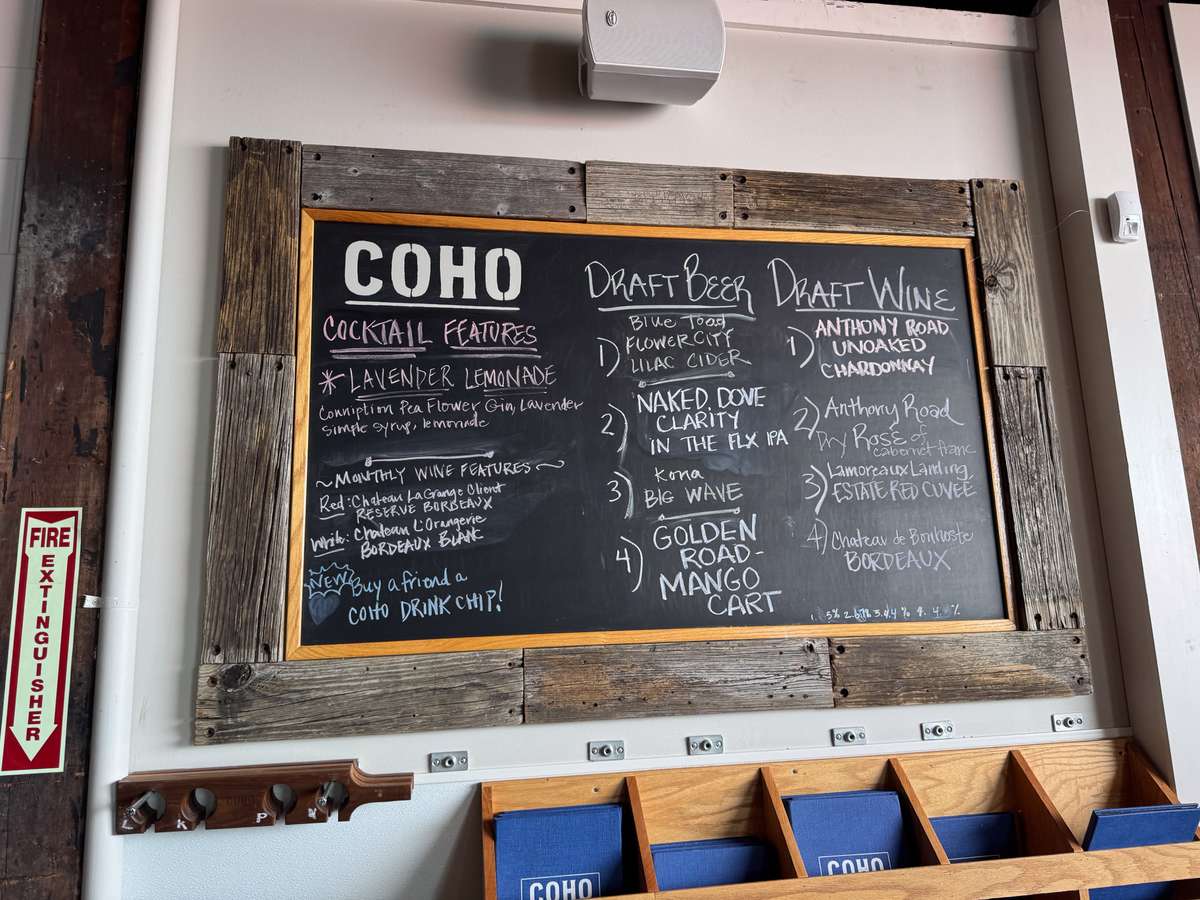 COHO
COCKTAIL FEATURES
* LAVENDER LEMONADE
Conniption Pea Flower Gin, Lavender
simple syrup, lemonade
~MONTHLY WINE FEATURES~
Red: Chateau LaGrange Client
RESERVE BORDEAUX
White: Chateau L'Orangerie
BORDEAUX BLANC
NEW Buy a friend a
COHO DRINK CHIP!
DRAFT BEER
1) Blue Toad
FLOWER CITY
LILAC CIDER
2) NAKED DOVE
CLARITY
IN THE FLX IPA
3) Kona
BIG WAVE
4) GOLDEN
ROAD-
MANGO
CART
DRAFT WINE
1) ANTHONY ROAD
UNOAKED
CHARDONNAY
2) Anthony Road
Dry Rosé of
cabernet franc
3) Lamoreaux Landing
ESTATE RED CUVEE
4) Chateau de Bonhoste
BORDEAUX
FIRE
EXTINGUISHER
K P
COHO
COHO